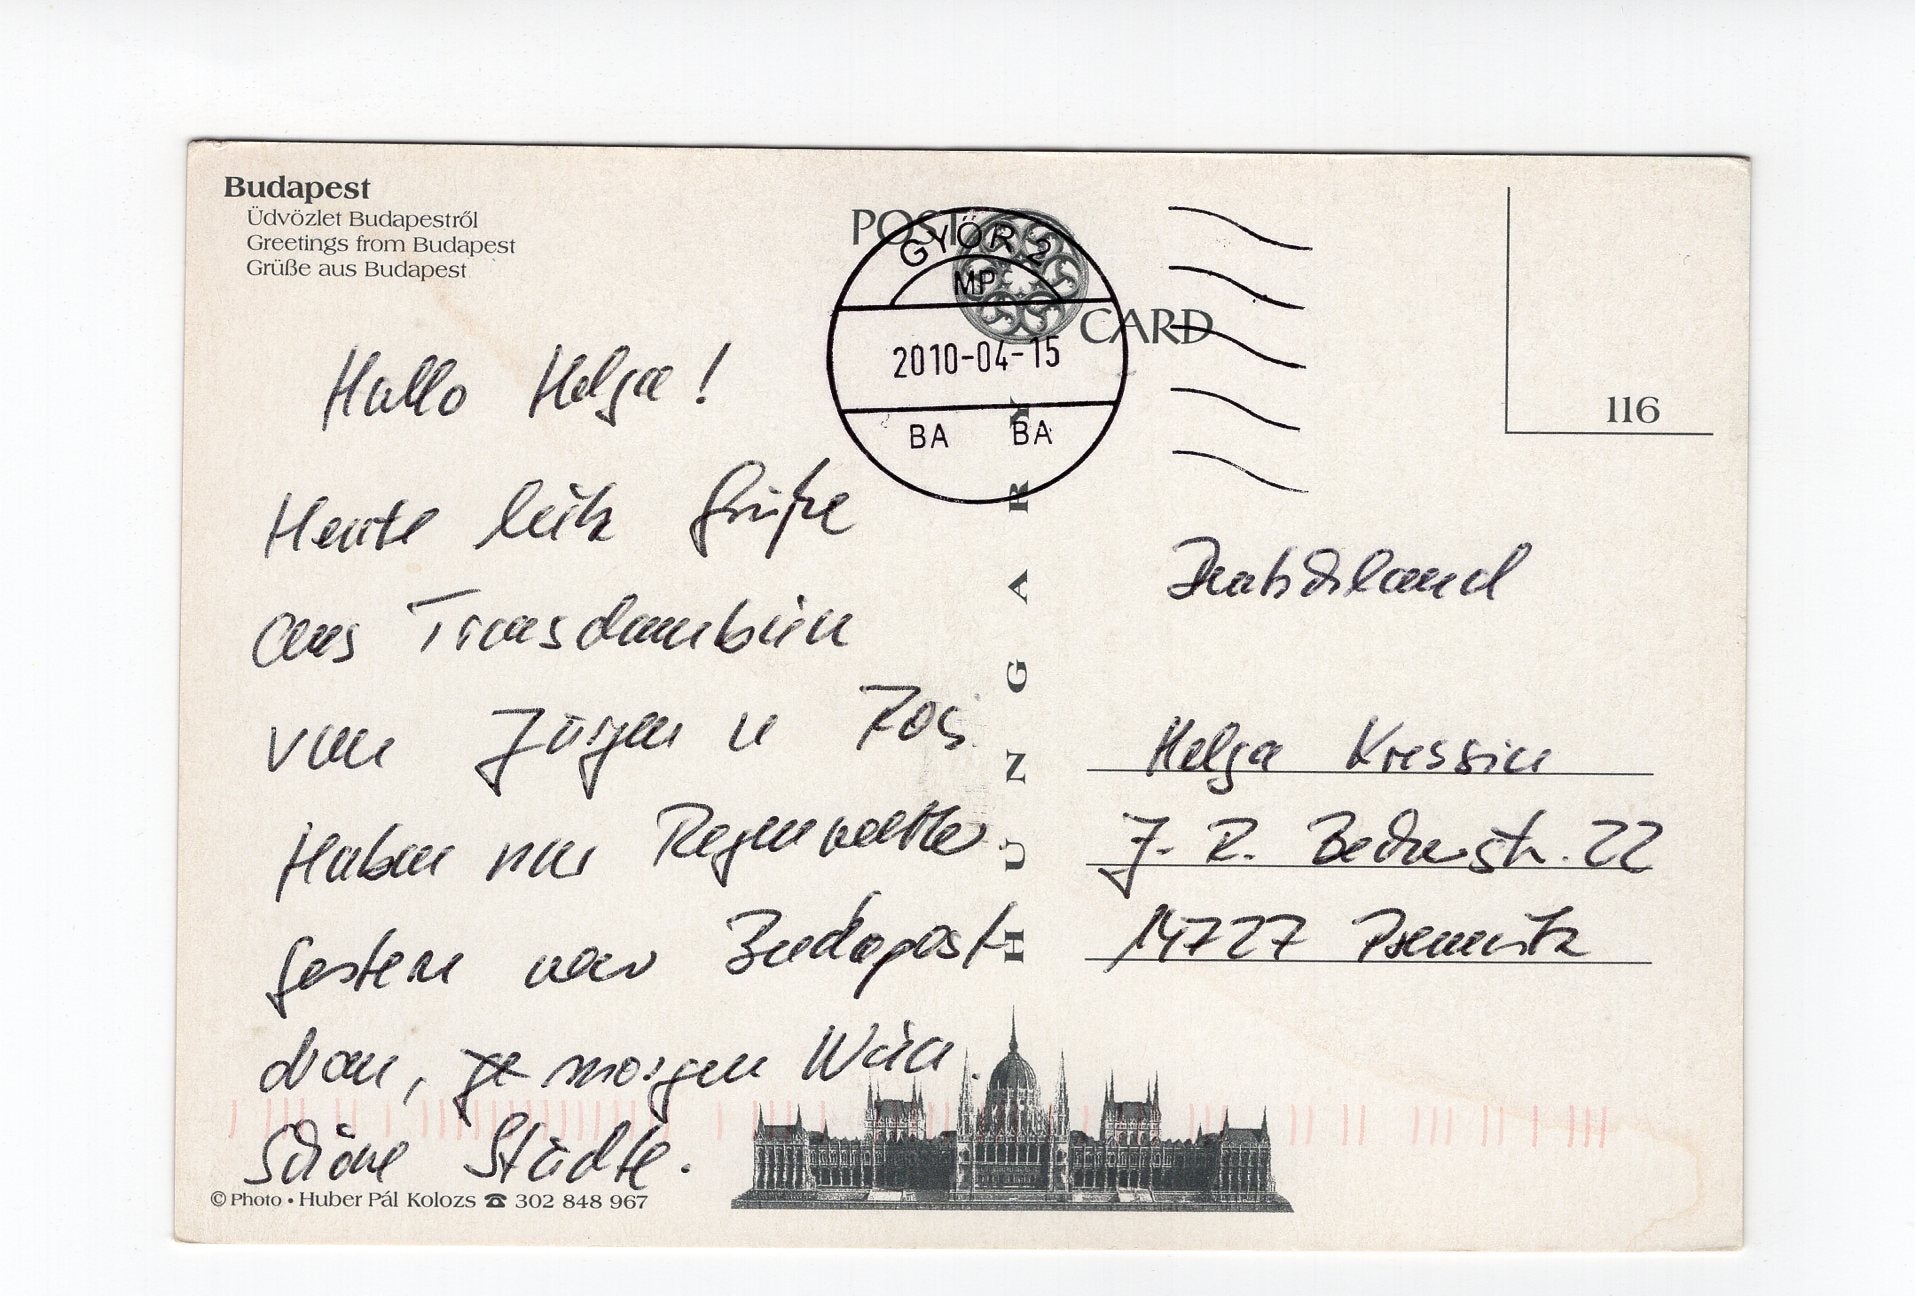 Budapest
Üdvözlet Budapestről
Greetings from Budapest
Grüße aus Budapest
POST CARD
GYŐR 2
MP
2010-04-15
BA BA
116
HUNGARY
Hallo Helga!
Heute liebe Grüße
aus Transdanubien
von Jürgen u
Haben nur Regenwetter
gestern war Budapest
dran, morgen Wien.
Schöne Städte.
Deutschland
Helga Kressin
J. R. Becherstr. 22
14727 Premnitz
© Photo • Huber Pál Kolozs ☎ 302 848 967